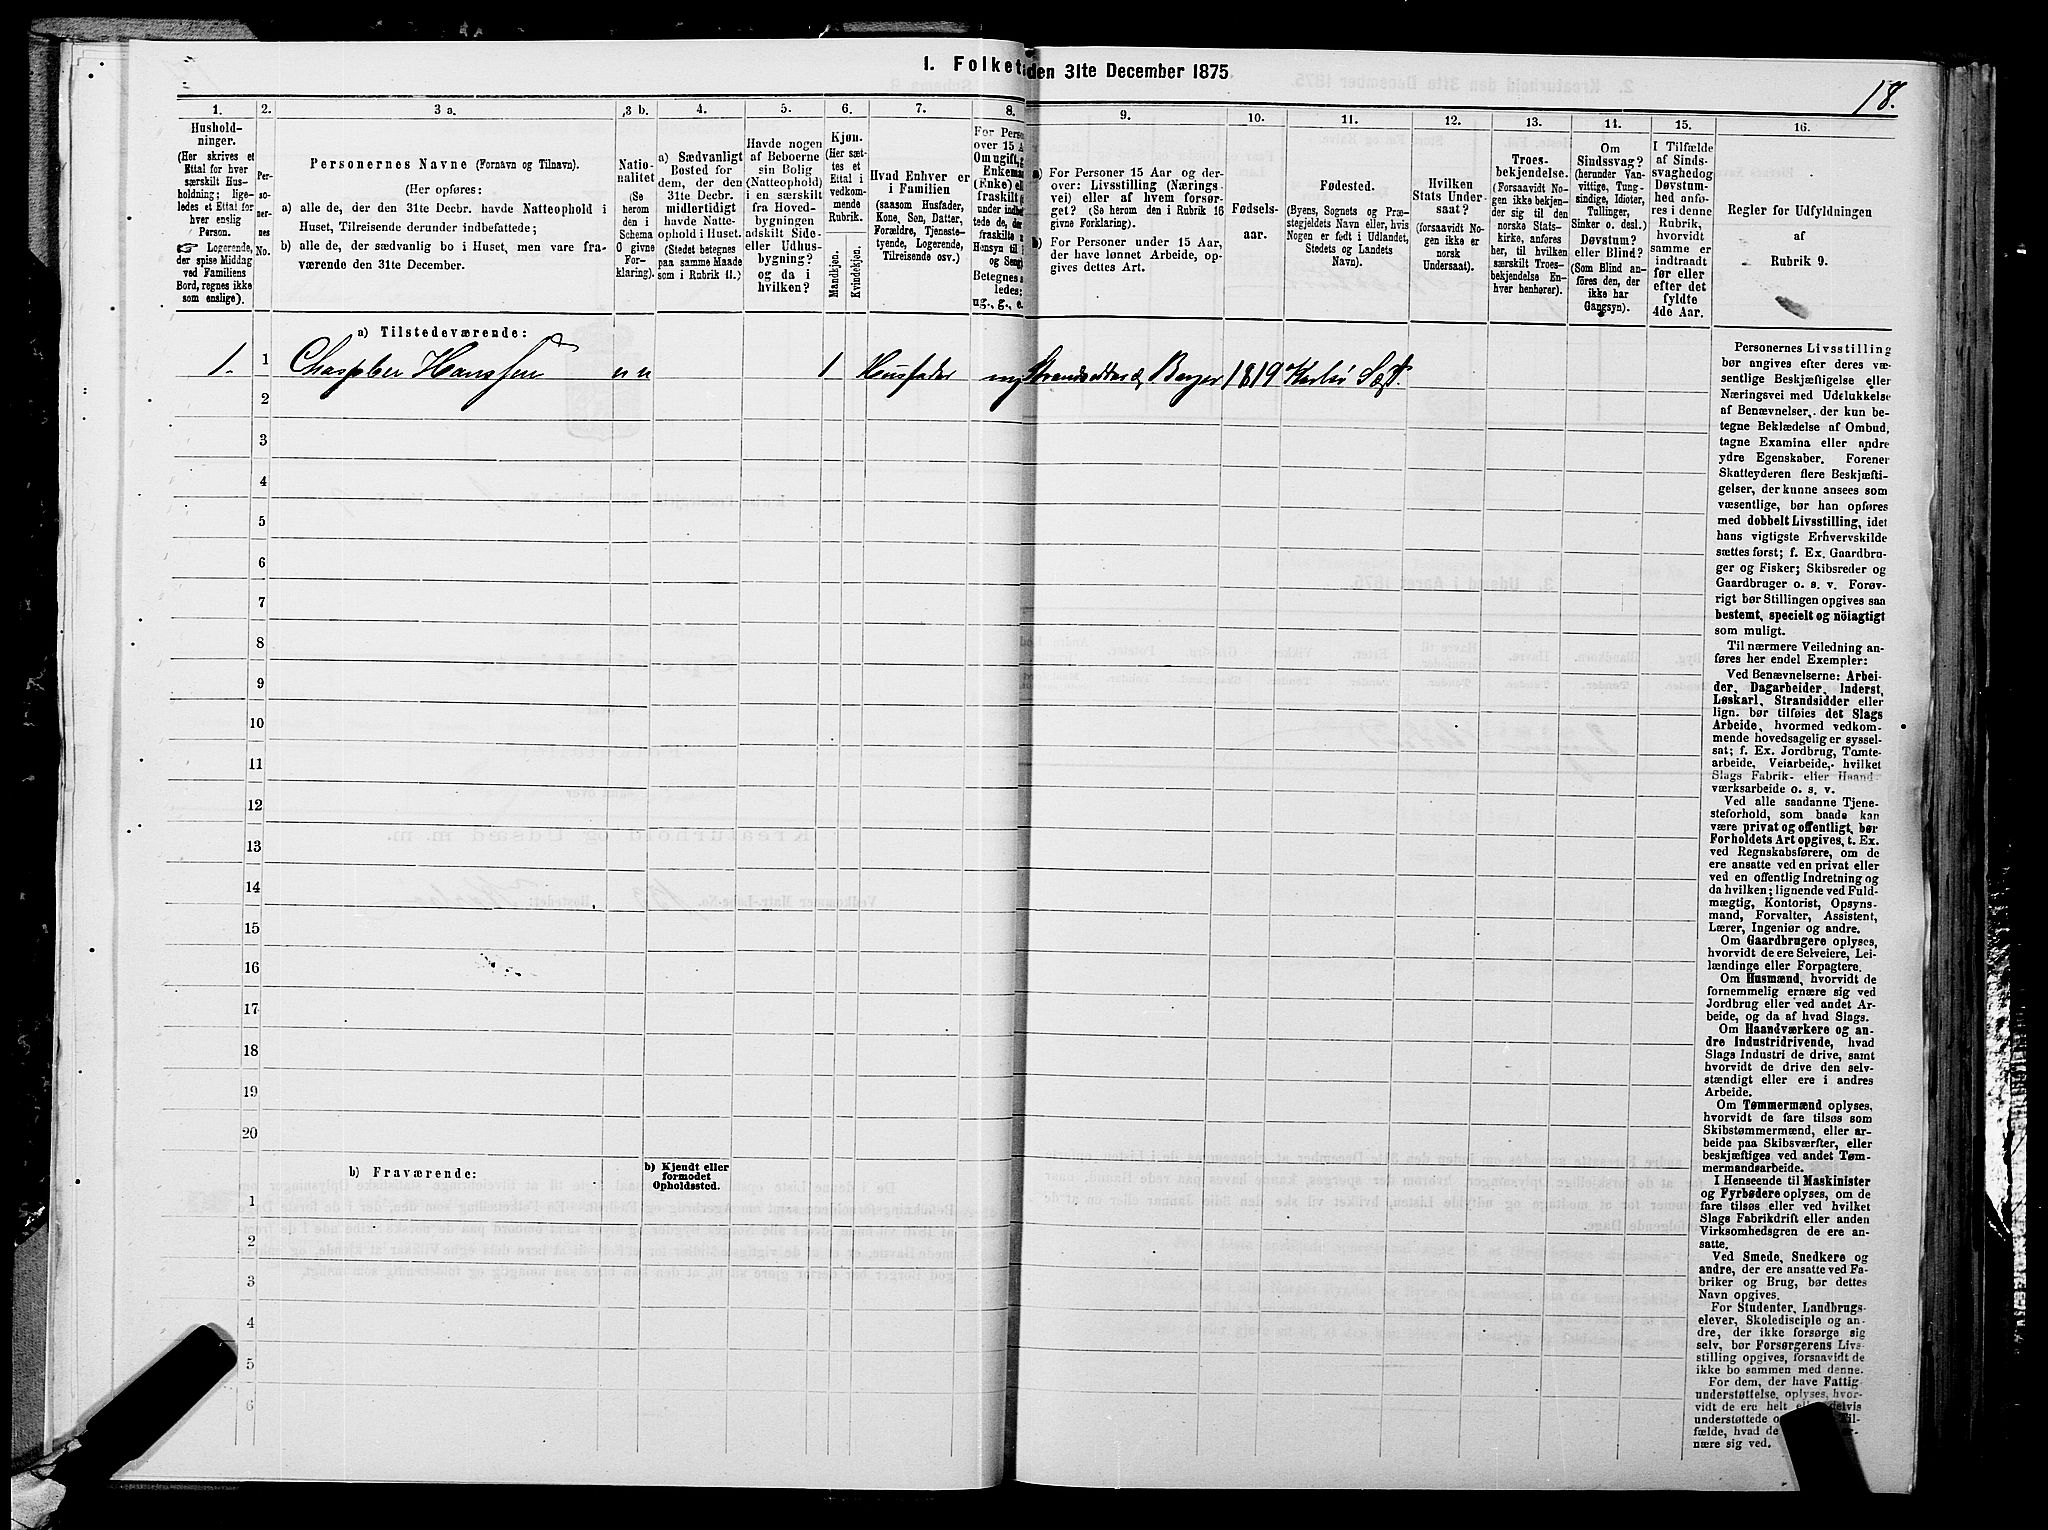 1. Folket
den 31te December 1875
18.
1.
2.
3 a.
3 b.
4.
5.
6.
7.
8.
9.
10.
11.
12.
13.
14.
15.
16.
Hushold-
ninger.
(Her skrives et
Ettal for hver
særskilt Hus-
holdning; lige-
ledes et Ettal for
hver enslig
Person.
☞ Logerende,
der spise Middag
ved Familiens
Bord, regnes ikke
som enslige).
Per-
so-
ner-
nes
No.
Personernes Navne (Fornavn og Tilnavn).
(Her opføres:
a) alle de, der den 31te Decbr. havde Natteophold i
Huset, Tilreisende derunder indbefattede;
b) alle de, der sædvanlig bo i Huset, men vare fra-
værende den 31te December.
Natio-
nalitet
(Se
herom
den i
Schema
O givne
For-
klaring).
a) Sædvanligt
Bosted for
dem, der den
31te Decbr.
midlertidigt
havde Natte-
ophold i Huset.
(Stedet betegnes
paa samme Maade
som i Rubrik 11.)
Havde nogen
af Beboerne
sin Bolig
(Natteophold)
i en særskilt
fra Hoved-
bygningen
adskilt Side-
eller Udhus-
bygning?
og da i
hvilken?
Kjøn.
(Her sæt-
tes et
Ettal i
vedkom-
mende
Rubrik.
Mandkjøn.
Kvindekjøn.
Hvad Enhver er
i Familien
(saasom Husfader,
Kone, Søn, Datter,
Forældre, Tjeneste-
tyende, Logerende,
Tilreisende osv.)
For Perso
over 15 A
Om ugift, g
Enkema
(Enke) el
fraskilt
under indbe
tede de,
fraskilte
Hensyn til
og Seng
Betegnes s
ledes:
ug., g., e.
a) For Personer 15 Aar og der-
over: Livsstilling (Nærings-
vei) eller af hvem forsør-
get? (Se herom den i Rubrik 16
givne Forklaring).
b) For Personer under 15 Aar,
der have lønnet Arbeide, op-
gives dettes Art.
Fødsels-
aar.
Fødested.
(Byens, Sognets og Præ-
stegjeldets Navn eller, hvis
Nogen er født i Udlandet,
Stedets og Landets
Navn).
Hvilken
Stats Under-
saat?
(forsaavidt No-
gen ikke er
norsk
Undersaat).
Troes-
bekjendelse.
(Forsaavidt No-
gen ikke bekjen-
der sig til den
norske Stats-
kirke, anføres
her, til hvilken
særskilt Troes-
bekjendelse En-
hver henhører).
Om
Sindssvag?
(herunder Van-
vittige, Tung-
sindige, Idioter,
Tullinger,
Sinker o. desl.)
Døvstum?
eller Blind?
(Som Blind an-
føres den, der
ikke har
Gangsyn).
I Tilfælde
af Sinds-
svaghed og
Døvstum-
hed anfø-
res i denne
Rubrik,
hvorvidt
samme er
indtraadt
før eller
efter det
fyldte
4de Aar.
Regler for Udfyldningen
af
Rubrik 9.
a) Tilstedeværende:
1. 1 Hanssen n n 1 Husfader 1819 Karlsø
2
3
4
5
6
7
8
9
10
11
12
13
14
15
16
17
18
19
20
b) Fraværende:
b) Kjendt eller
formodet
Opholdssted.
1
2
3
4
5
6
Personernes Livsstilling
bør angives efter deres væ-
sentlige Beskjæftigelse eller
Næringsvei med Udelukkelse
af Benævnelser, der kun be-
tegne Beklædelse af Ombud,
tagne Examina eller andre
ydre Egenskaber. Forener
Skatteyderen flere Beskjæfti-
gelser, der kunne ansees som
væsentlige, bør han opføres
med dobbelt Livsstilling, idet
hans vigtigste Erhvervskilde
sættes først; f. Ex. Gaardbru-
ger og Fisker; Skibsreder og
Gaardbruger o. s. v. Forøv-
rigt bør Stillingen opgives saa
bestemt, specielt og nöiagtigt
som muligt.
Til nærmere Veiledning an-
føres her endel Exempler:
Ved Benævnelserne: Arbei-
der, Dagarbeider, Inderst,
Løskarl, Strandsidder eller
lign. bør tilføies det Slags
Arbeide, hvormed vedkom-
mende hovedsagelig er syssel-
sat; f. Ex. Jordbrug, Tomte-
arbeide, Veiarbeide, hvilket
Slags Fabrik- eller Haand-
værksarbeide o. s. v.
Ved alle saadanne Tjene-
steforhold, som baade kan
være privat og offentligt, bør
Forholdets Art opgives, t. Ex.
ved Regnskabsførere, om de
ere ansatte ved en privat eller
ved en offentlig Indretning og
da hvilken; lignende ved Fuld-
mægtig, Kontorist, Opsyns-
mand, Forvalter, Assistent,
Lærer, Ingeniør og andre.
Om Gaardbrugere oplyses,
hvorvidt de ere Selveiere, Lei-
lændinge eller Forpagtere.
Om Husmænd, hvorvidt de
fornemmelig ernære sig ved
Jordbrug eller ved andet Ar-
beide, og da af hvad Slags.
Om Haandværkere og an-
dre Industridrivende, hvad
Slags Industri de drive, samt
hvorvidt de drive den selv-
stændigt eller ere i andres
Arbeide.
Om Tømmermænd oplyses,
hvorvidt de fare tilsøs som
Skibstømmermænd, eller ar-
beide paa Skibsværfter, eller
beskjæftiges ved andet Tøm-
mermandsarbeide.
I Henseende til Maskinister
og Fyrbødere oplyses, om de
fare tilsøs eller ved hvilket
Slags Fabrikdrift eller anden
Virksomhedsgren de ere an-
satte.
Ved Smede, Snedkere og
andre, der ere ansatte ved Fa-
briker og Brug, bør dettes
Navn opgives.
For Studenter, Landbrugs-
elever, Skoledisciple og an-
dre, der ikke forsørge sig
selv, bør Forsørgerens Livs-
stilling opgives, forsaavidt de
ikke bo sammen med denne.
For dem, der have Fattig-
understøttelse, oplyses, hvor-
vidt de ere helt eller delvis
understøttede o Til-
fælde, hvad de er-
nære sig ved.